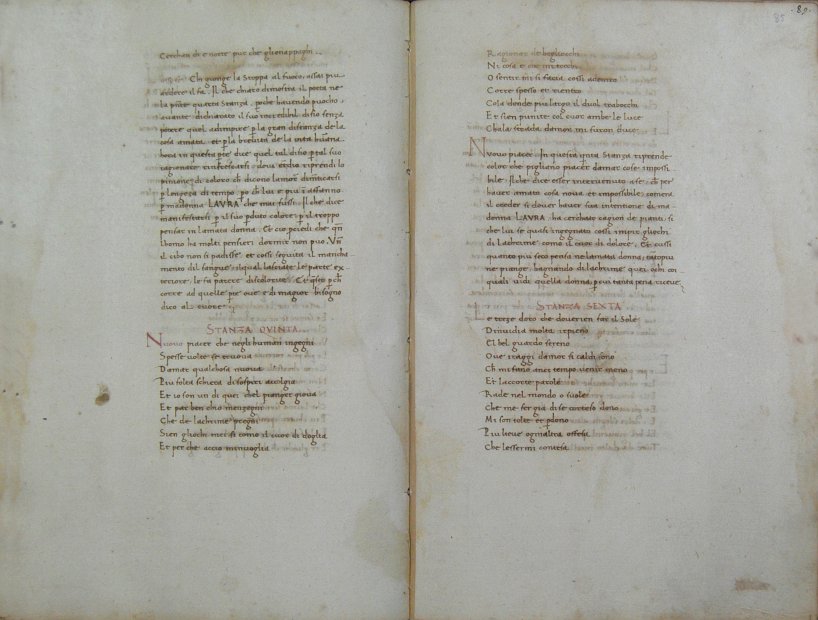 Cerchan di e notte pur che glienappaghi
Chi gionge la Stoppa al fuoco, assai piu
ardere il fa. Il che chiaro dimostra il poeta ne
la pñte quarta Stanza. poche havendo puocho
avante dichiarato il suo incredibil disio senza
potere quel adimpire p la gran distanza de la
cosa amata. et p la brevita de la vita humana
hora in questa pte dice quel tal disio p tal suo
ragionare rinfrescarsi. dove etdio riprendi lo
pinione di coloro ch dicono lamore dimẽticarsi
p longeza di tempo. po ch lui e piu i affanno
p madonna LAVRA che mai fussi. Il che dice
manifestarsi p il suo pduto colore: p il troppo
pensar in lamata donna. Et cio pciedi che qñ
lhomo ha molti pensieri dormir non puo. Vñ
il cibo non si padisse. et cossi seguita il mancha
mento dil sangue. ilqual lasciate le parte ex
teriore: le fa parere discollorite. Et qsto pch
corre ad quelle pte ove e di magior bisogno
dico al cuore.
STANZA QVINTA
Nuovo piacer che negli humani ingegni
Spesse volte se truova
Damar qualchosa nuova
Piu folta schiera di sospiri accolgia
Et io son un di quei chel pianger giova
Et par ben chio mengegni
Che de lachrime pregni
Sien gliochi mei si como il cuor di doglia
Et per che accio minvoglia
· 89 ·
85
Ragionar de begliocchi
Ni cosa e che mi tocchi
O sentir mi si faccia cossi adentro
Corre spesso et rientro
Cola donde piu largo il duol trabocchi
Et sien punite col cuor ambe le luce
Chala strada damor mi furon duce
Nuovo piacer. In questa quita Stanza riprende
coloro che pigliano piacer damar cose impossi
bile. Il che dice esser intervenuto a se. ch per
haver amato cosa nova et impossibile, comera
il creder si dover haver sua intentione di ma-
donna LAVRA. ha cerchato cagion de pianti. si
che lui se quasi ingegnato cossi impir gliochi
di lachrime. como il cuor di dolore. Et cussi
quanto piu seco pensa ne lamata donna, tãto piu
ne piange, bagnando di lachrime quei ochi coi
quali vidi quella donna, p cui tanta pena riceve
STANZA SEXTA
Le treze doro che dovrien far il Sole
Dinvidia molta ir pieno
El bel guardo sereno
Ove i raggi damor si caldi sono
Ch mi fano anci tempo venir meno
Et laccorte parole
Rade nel mondo o suole
Che me fer gia di se cortese dono
Mi son tolte et pdono
Piu lieve ognaltra offesa
Che lessermi contesa